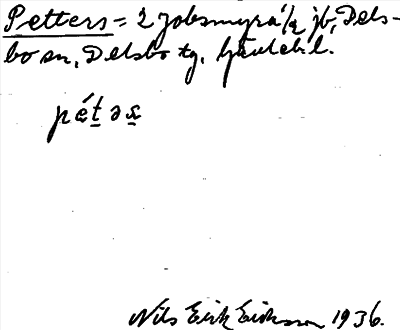 Petters = 2 Jobsmyra 1/2 jb, Dels-
bo sn, Delsbo tg. Gävleb. l.
pétəs
Nils Erik Eriksson 1936.